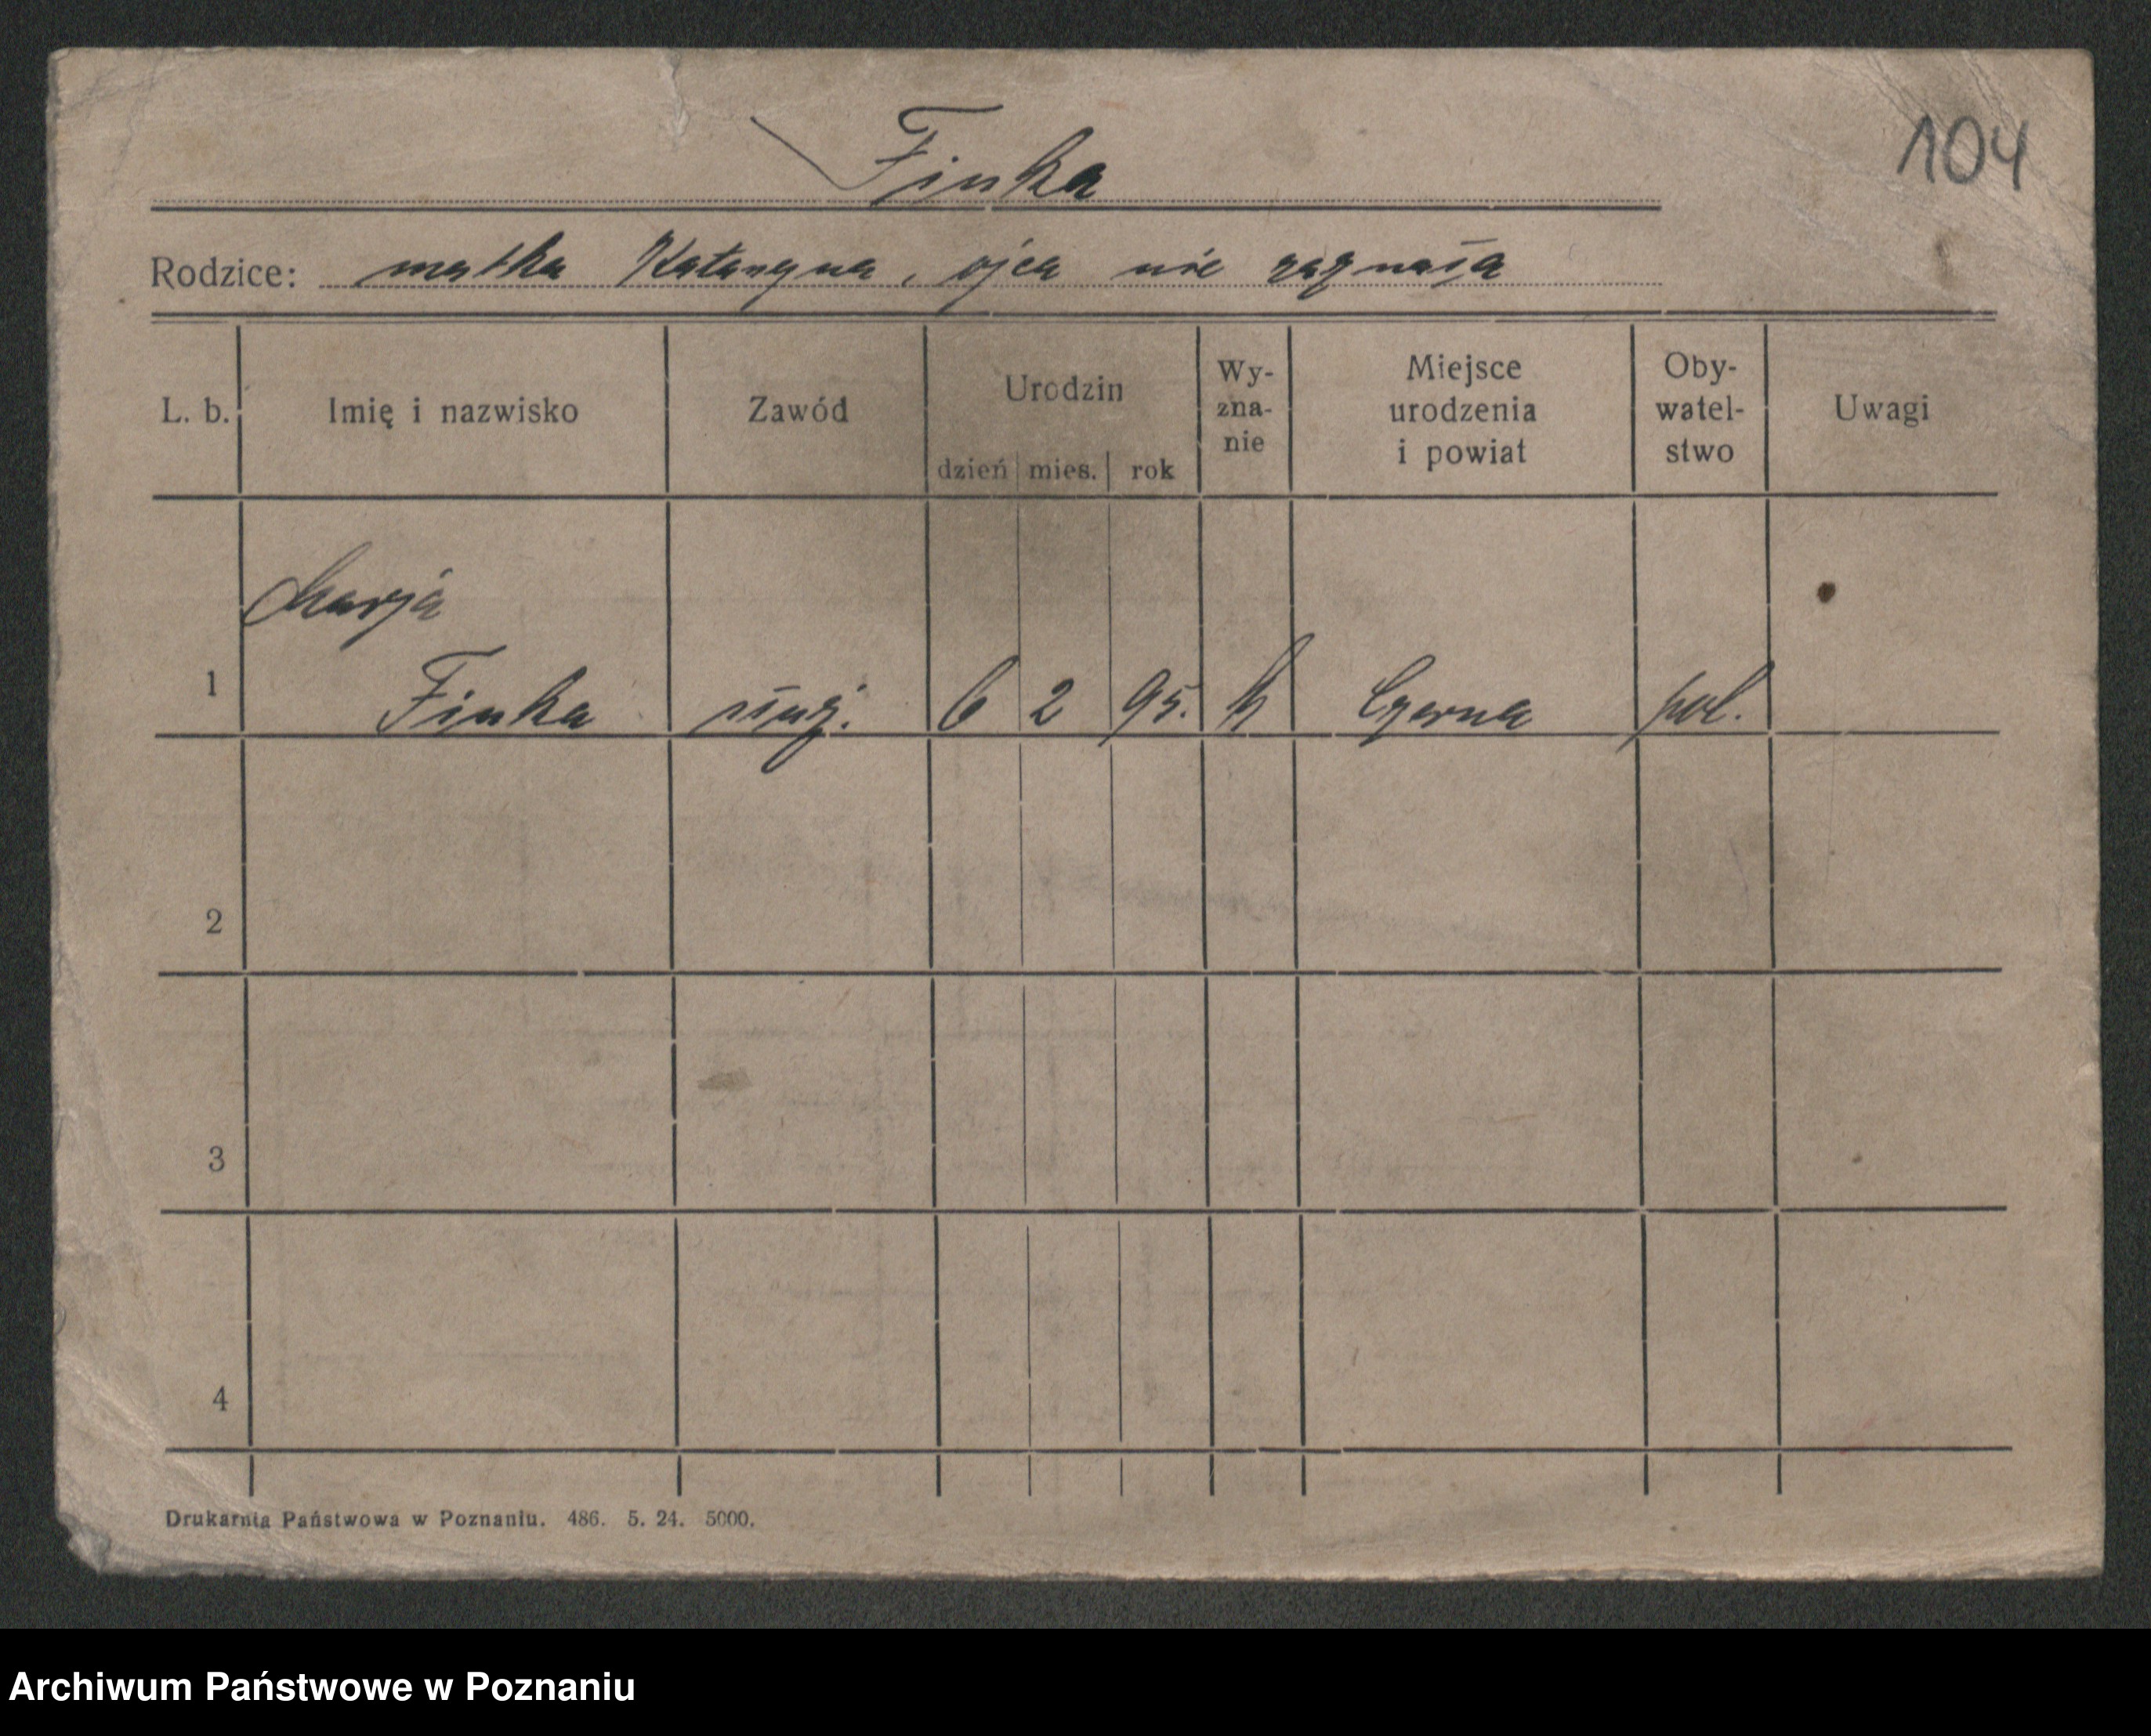 Finka
104
Rodzice: matka Katarzyna, ojca nie zaznała
L. b. Imię i nazwisko Zawód Urodzin dzień mies. rok Wy-zna-nie Miejsce urodzenia i powiat Oby-watel-stwo Uwagi
Marja
1 Finka służ. 6 2 95. k Czarna pol.
2
3
4
Drukarnia Państwowa w Poznaniu. 486. 5. 24. 5000.
Archiwum Państwowe w Poznaniu